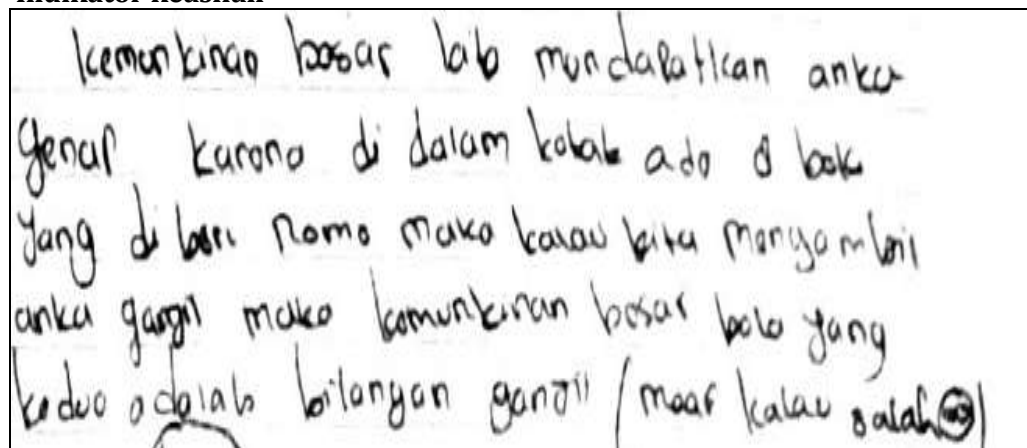 kemunkinan besar lab mundapatkan anka
genap karena di dalam kotak ada 8 bola
yang di beri nomo maka kalau kita mengambil
anka gangil maka kemunkinan besar bola yang
kedua adalah bilangan ganjil (maaf kalau salah